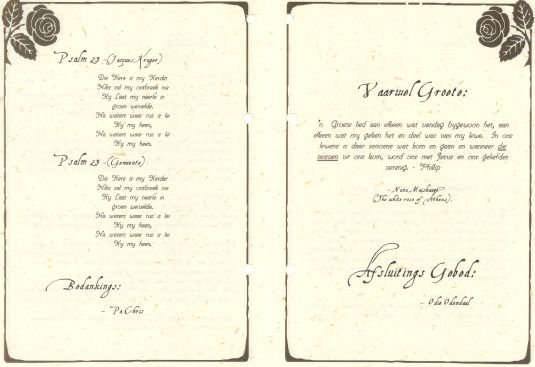 Psalm 23 - (Jacques Kruger)
Die Here is my Herder
Niks sal my ontbreek nie
Hy Laat my neerlê in
groen weivelde.
Na waters waar rus is lei
Hy my heen,
Na waters waar rus is lei
Hy my heen.
Psalm 23 - (Gemeente)
Die Here is my Herder
Niks sal my ontbreek nie
Hy Laat my neerlê in
groen weivelde.
Na waters waar rus is lei
Hy my heen,
Na waters waar rus is lei
Hy my heen.
Bedankings:
- Pa Chris
Vaarwel Groete:
'n Groete lied aan elkeen wat vandag bygewoon het, aan
elkeen wat my geken het en deel was van my lewe. In ons
lewens is daar seisoene wat kom en gaan en wanneer die
seisoen vir ons kom, word ons met Jesus en ons geliefdes
verenig. - Phillip
- Nana Mouskouri
(The white rose of Athens).
Afsluitings Gebed:
- Odie Odendaal